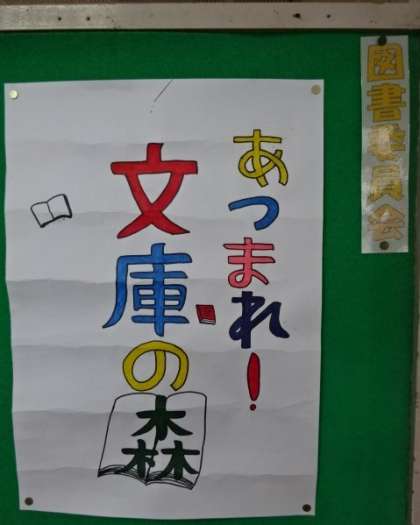 図書委員会
あつまれ!
文庫の森